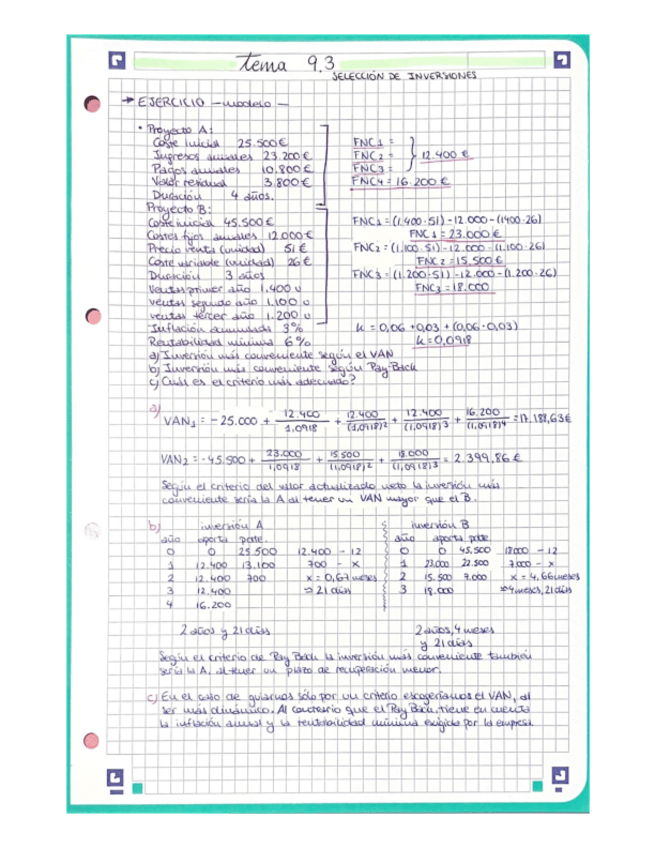 tema 9.3
SELECCIÓN DE INVERSIONES
→ EJERCICIO - modelo -
• Proyecto A:
Coste inicial 25.500€
Ingresos anuales 23.200€
Pagos anuales 10.800€
Valor residual 3.800€
Duración 4 años.
FNC1 =
FNC2 =
FNC3 =
12.400 €
FNC4 = 16.200 €
Proyecto B:
Coste inicial 45.500€
Costes fijos anuales 12.000€
Precio venta (unidad) 51€
Coste variable (unidad) 26€
Duración 3 años
Ventas primer año 1.400 u
ventas segundo año 1.100 u
ventas tercer año 1.200 u
FNC1 = (1.400·51) - 12.000 - (1400·26)
FNC1 = 23.000€
FNC2 = (1.100·51) - 12.000 - (1.100·26)
FNC2 = 15.500€
FNC3 = (1.200·51) - 12.000 - (1.200·26)
FNC3 = 18.000
Inflación acumulada 3%
Rentabilidad mínima 6%
k = 0,06 + 0,03 + (0,06·0,03)
k = 0,0918
a) Inversión más conveniente según el VAN
b) Inversión más conveniente según Pay Back
c) Cuál es el criterio más adecuado?
a) VAN1 = -25.000 + 12.400/1,0918 + 12.400/(1,0918)2 + 12.400/(1,0918)3 + 16.200/(1,0918)4 = 17.188,63€
VAN2 = -45.500 + 23.000/1,0918 + 15.500/(1,0918)2 + 18.000/(1,0918)3 = 2.399,86€
Según el criterio del valor actualizado neto la inversión más
conveniente sería la A al tener un VAN mayor que el B.
b) inversión A
año aporta pdte.
0 0 25.500 12.400 - 12
1 12.400 13.100 700 - x
2 12.400 700 x = 0,67 meses
3 12.400 = 21 días
4 16.200
2 años y 21 días
inversión B
año aporta pdte.
0 0 45.500 18000 - 12
1 23.000 22.500 7000 - x
2 15.500 7.000 x = 4,66 meses
3 18.000 = 4 meses, 21 días
2 años, 4 meses
y 21 días
Según el criterio de Pay Back la inversión más conveniente también
sería la A, al tener un plazo de recuperación menor.
c) En el caso de guiarnos sólo por un criterio escogeríamos el VAN, al
ser más dinámico. Al contrario que el Pay Back, tiene en cuenta
la inflación anual y la rentabilidad mínima exigida por la empresa.